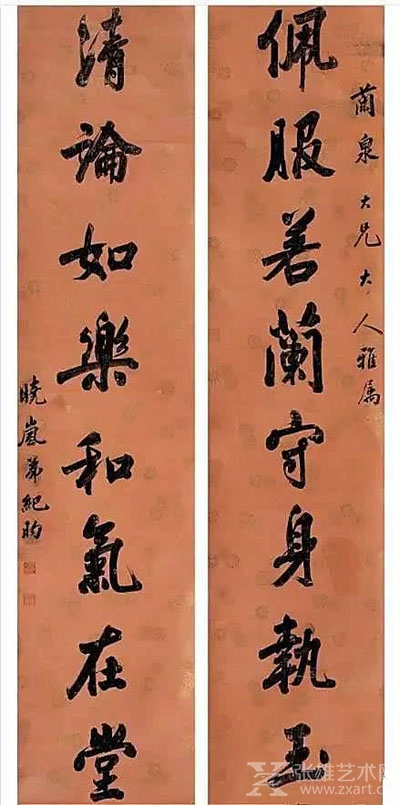 蘭泉大兄大人雅属
佩服若蘭守身執玉
清論如樂和氣在堂
曉嵐弟紀昀
张雄艺术网
www.zxart.cn